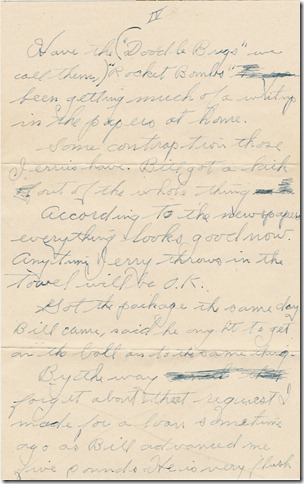 IV
Have the ("Doodle Bugs" we
call them,) "Rocket Bombs"
been getting much of a writeup
in the papers at home.
Some contraption those
Jerries have. Bill got a kick
out of the whole thing
According to the newspapers
everything looks good now.
Anytime Jerry throws in the
towel will be O.K.
Got the package the same day
Bill came, said he ought to get
on the ball and do the same thing.
By the way
forget about that request I
made for a loan sometime
ago as Bill advanced me
five pounds. He is very flush